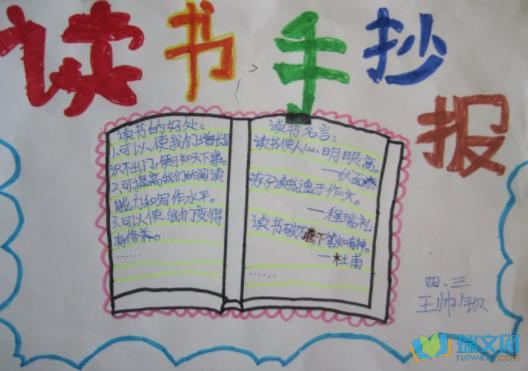 读书手抄报
读书的好处:
1.可以使我们增长知
识不出门,便可知天下事。
2.可提高我们的阅读
能力和写作水平。
3.可以使我们变得
有修养。
……
读书名言:
读书使人心明眼亮。
——伏尔泰
劳于读书逸于作文。
——程端礼
读书破万卷下笔如有神。
——杜甫
四、三
王帅钦
瑞文网
ruiwen